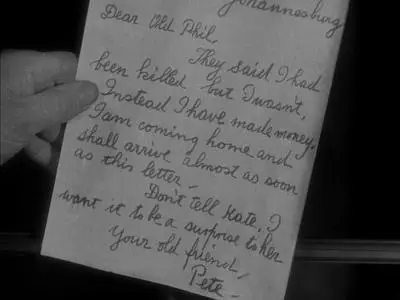 Johannesburg
Dear Old Phil,
They said I had
been killed but I wasn't.
Instead I have made money.
I am coming home and
shall arrive almost as soon
as this letter –
Don't tell Kate, I
want it to be a surprise to her
Your old friend,
Pete –